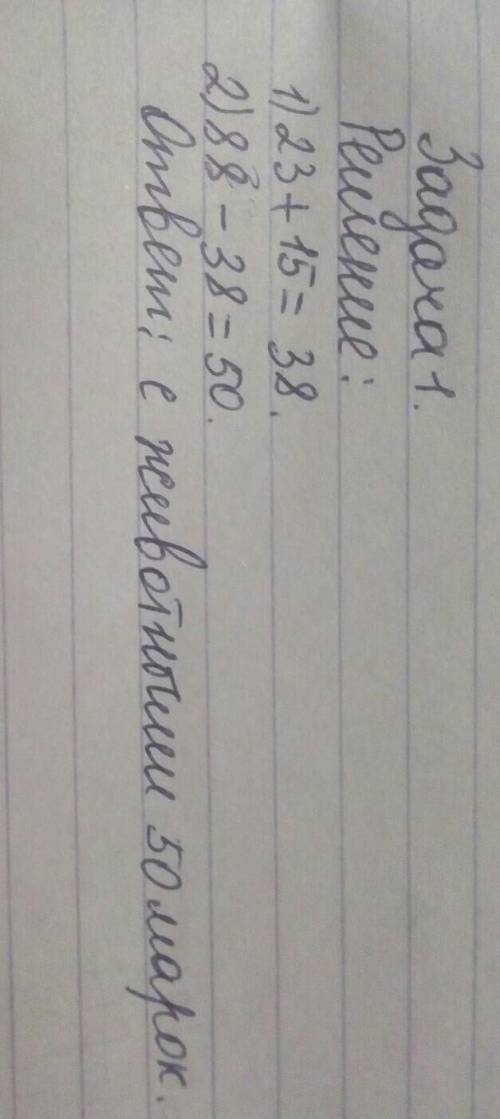 Задача 1.
Решение:
1) 23 + 15 = 38.
2) 88 - 38 = 50.
Ответ: с животными 50 марок.